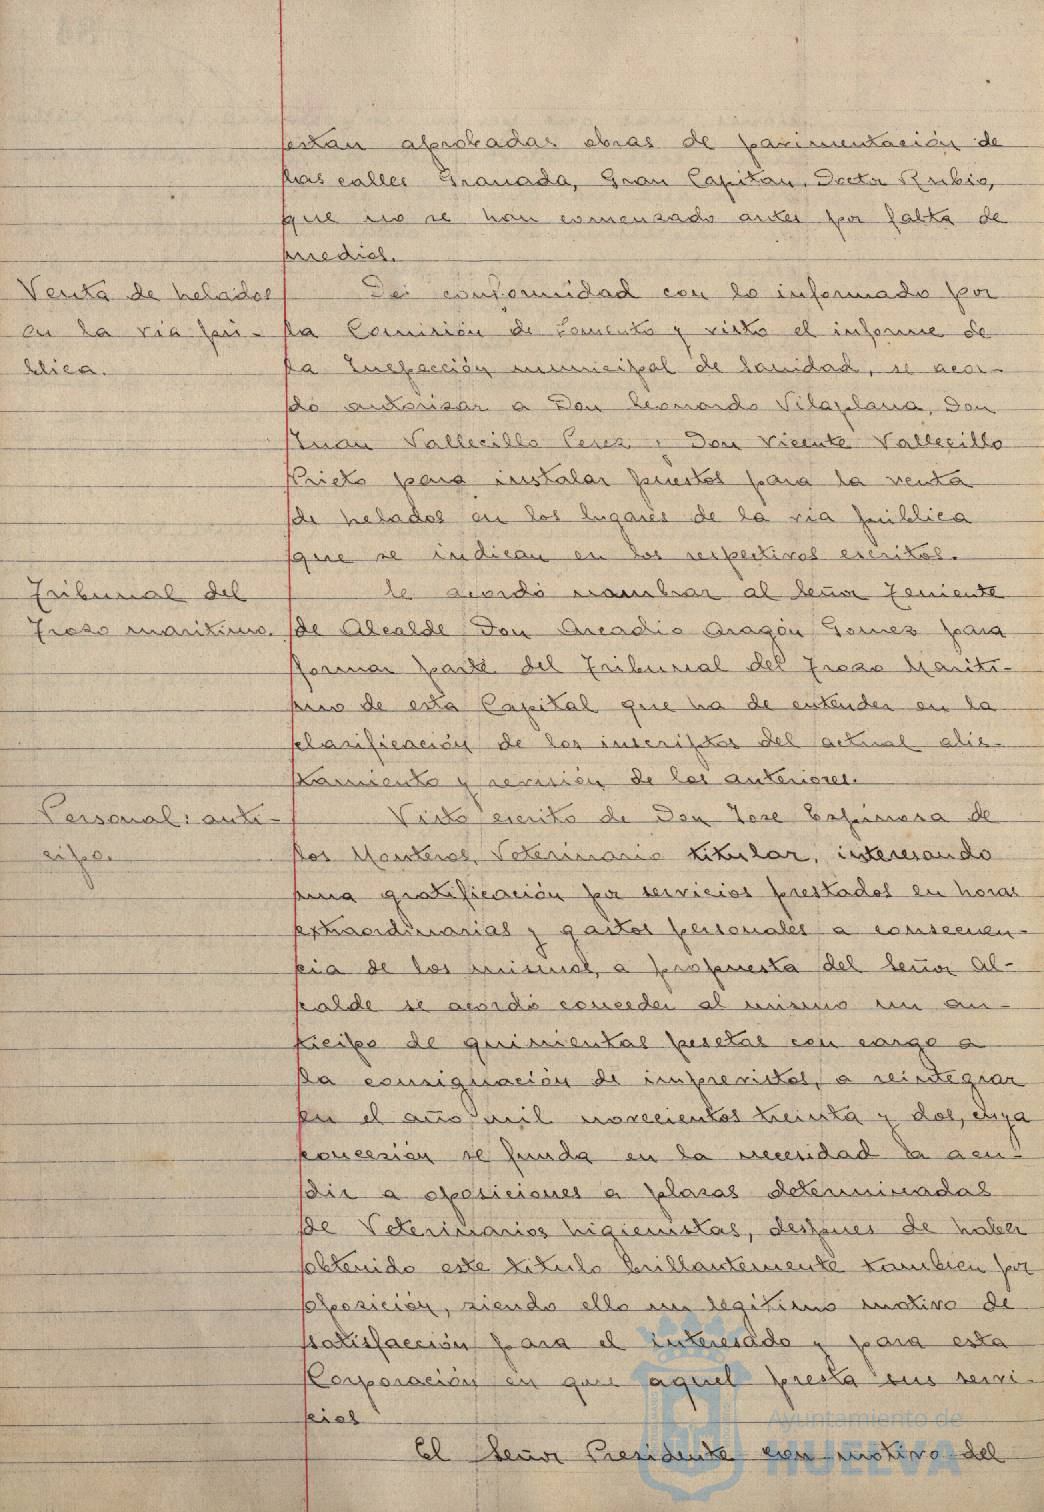 estan aprobadas obras de pavimentación de
las calles Granada, Gran Capitan, Doctor Rubio,
que no se han comenzado antes por falta de
medios.
Venta de helados
en la via pú-
blica.
De conformidad con lo informado por
la Comisión de Fomento y visto el informe de
la Inspección municipal de Sanidad, se acor-
dó autorizar a Don Leonardo Vilaplana, Don
Juan Vallecillo Perez y Don Vicente Vallecillo
Prieto para instalar puestos para la venta
de helados en los lugares de la via pública
que se indican en los respectivos escritos.
Tribunal del
Trozo maritimo.
Se acordó nombrar al Señor Teniente
de Alcalde Don Arcadio Aragón Gomez para
formar parte del Tribunal del Trozo Mariti-
mo de esta Capital que ha de entender en la
clasificación de los inscriptos del actual alis-
tamiento y revisión de los anteriores.
Personal: anti-
cipo.
Visto escrito de Don Jose Espinosa de
los Monteros, Veterinario titular, interesando
una gratificación por servicios prestados en horas
extraordinarias y gastos personales a consecuen-
cia de los mismos, a propuesta del Señor Al-
calde se acordó conceder al mismo un an-
ticipo de quinientas pesetas con cargo a
la consignación de imprevistos, a reintegrar
en el año mil novecientos treinta y dos, cuya
concesión se funda en la necesidad de acu-
dir a oposiciones a plazas determinadas
de Veterinarios higienistas, despues de haber
obtenido este titulo brillantemente tambien por
oposición, siendo ello un legítimo motivo de
satisfacción para el interesado y para esta
Corporación en que aquel presta sus servi-
cios
El Señor Presidente con motivo del
Ayuntamiento de
HUELVA